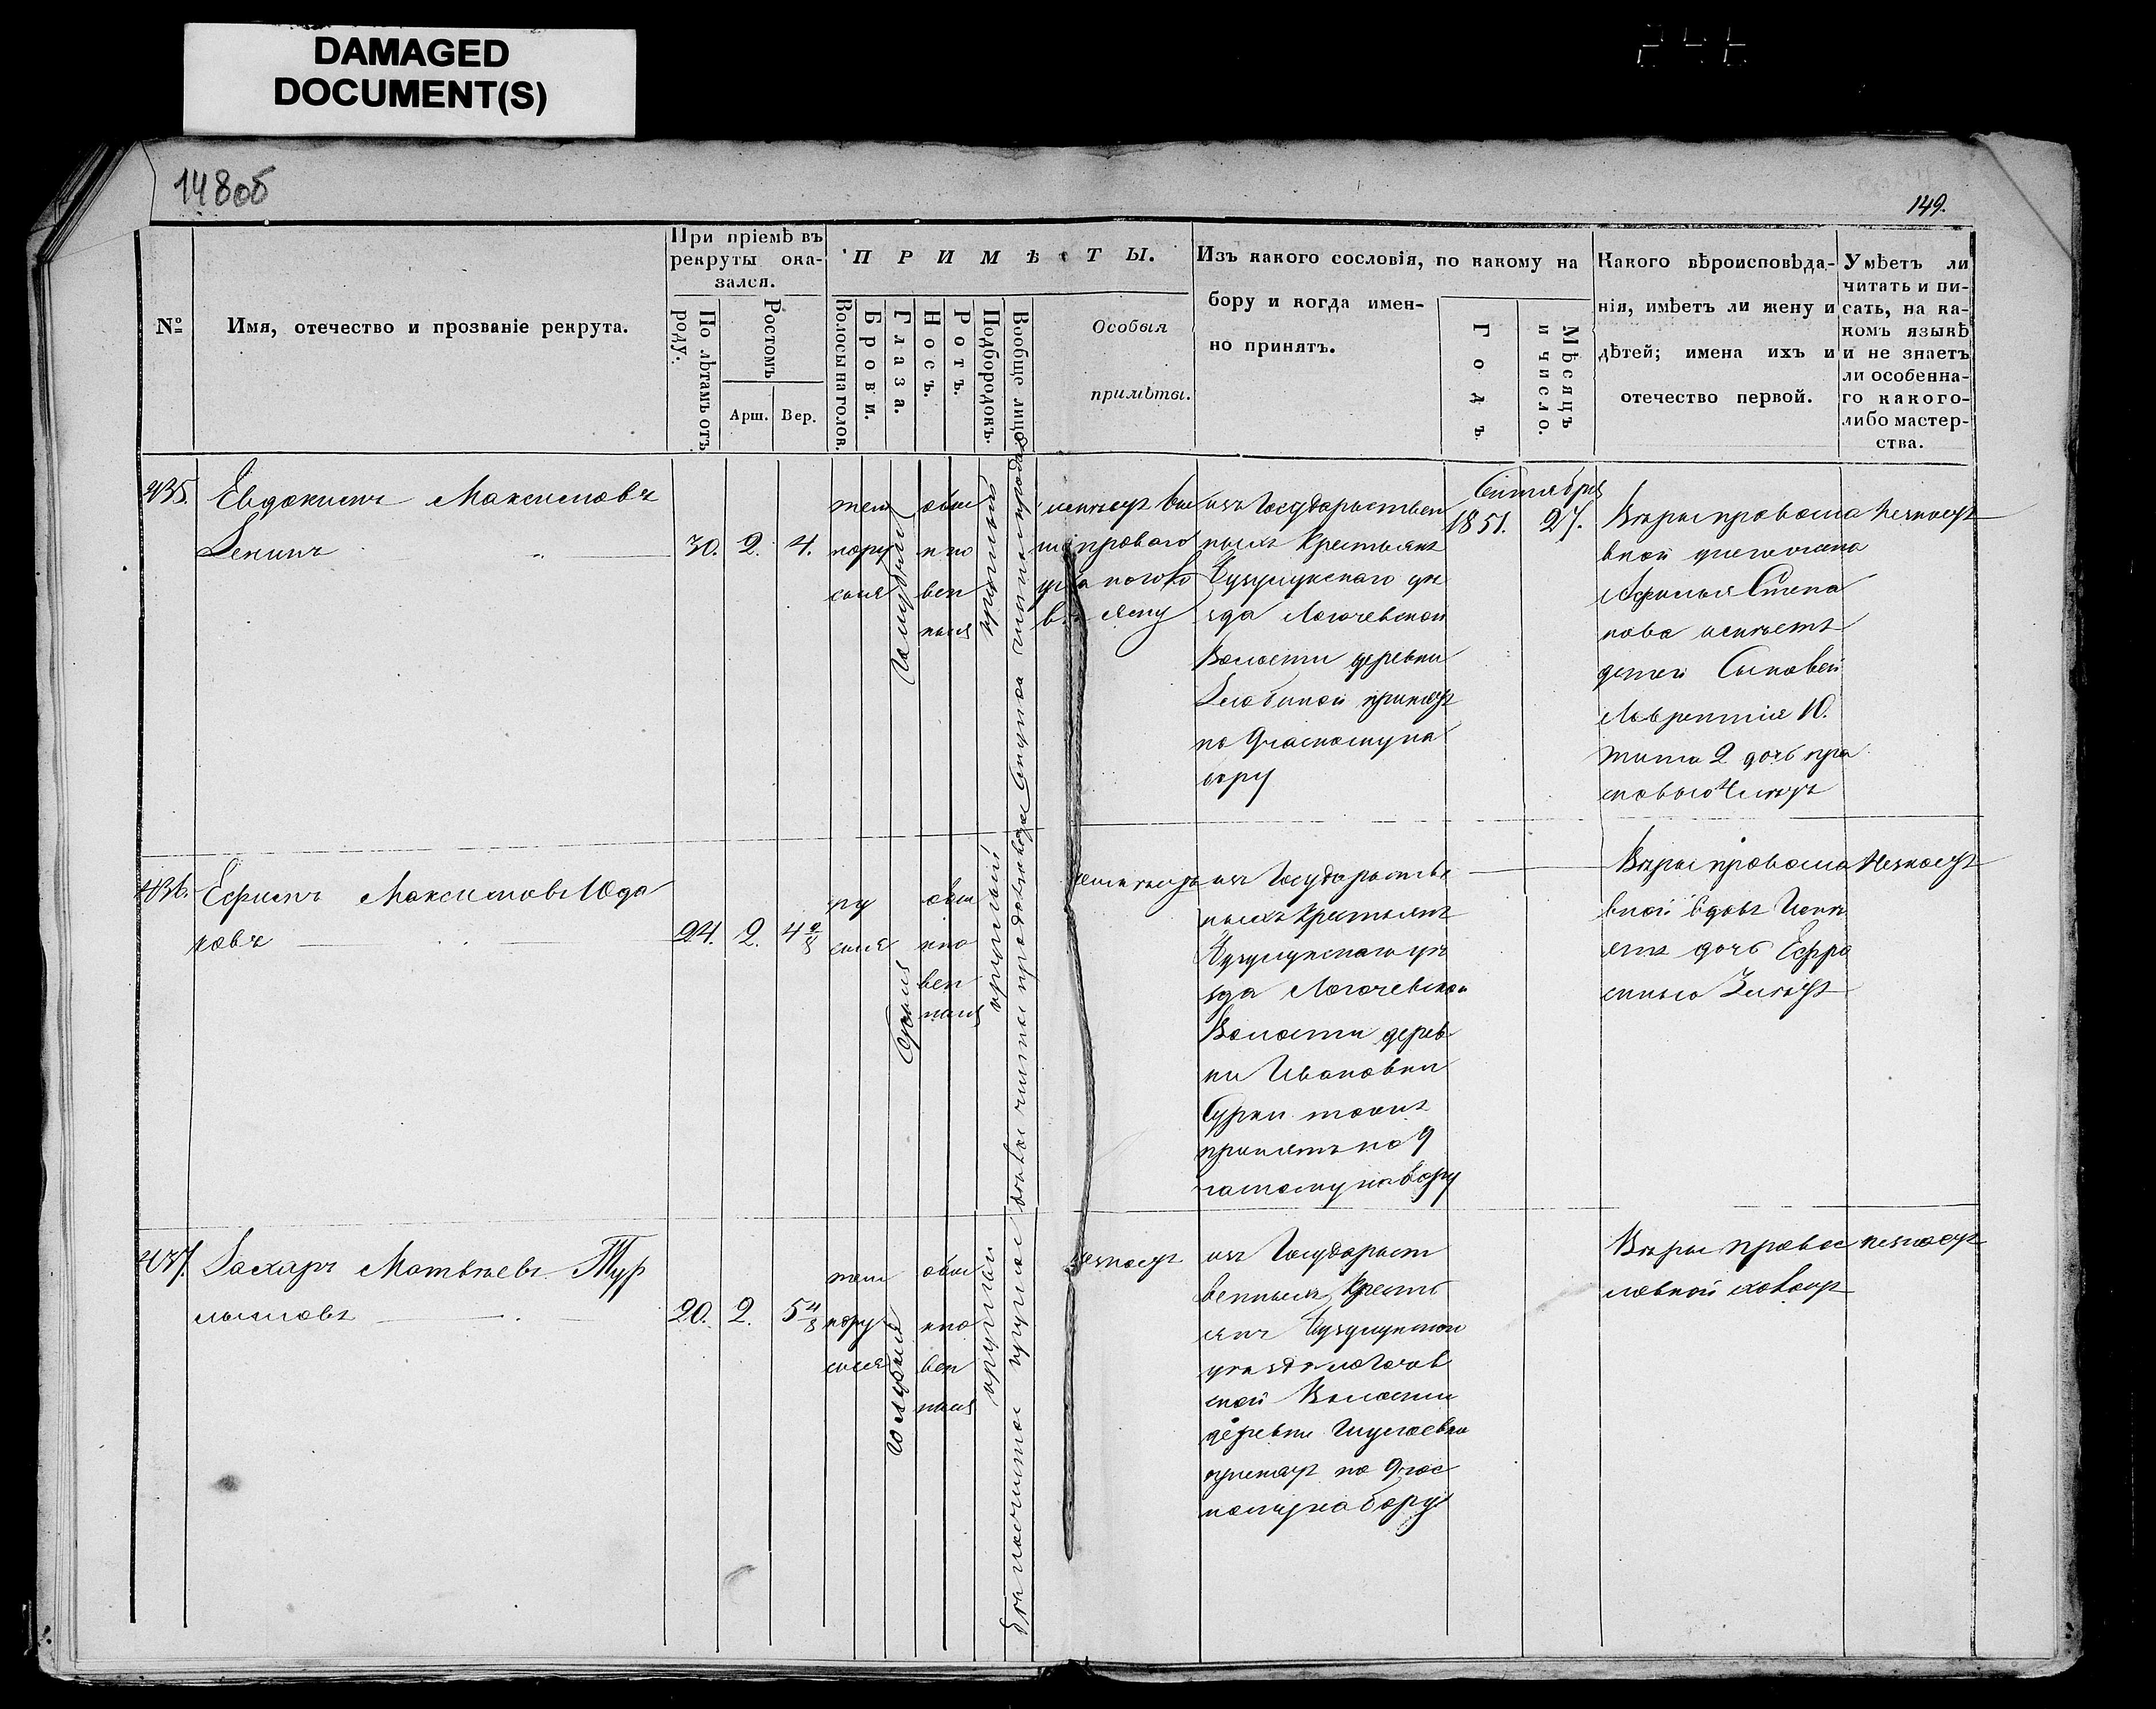 DAMAGED
DOCUMENT(S)
148об
149.
№
Имя, отечество и прозваніе рекрута.
При пріемѣ въ
рекруты ока-
зался.
По лѣтамъ отъ
роду.
Ростомъ
Арш.
Вер.
ПРИМѢТЫ.
Волосы на голов.
Брови.
Глаза.
Носъ.
Ротъ.
Подбородокъ.
Вообще лицо
Особыя
примѣты.
Изъ какого сословія, по какому на
бору и когда имен-
но принятъ.
Годъ
Мѣсяцъ
и число.
Какого вѣроисповѣда-
нія, имѣетъ ли жену и
дѣтей; имена ихъ и
отечество первой.
Умѣетъ ли
читать и пи-
сать, на ка-
комъ языкѣ
и не знаетъ
ли особенна-
го какого-
либо мастер-
ства.
435.
Евдокимъ Максимовъ
30. 2. 4.
тем
нору
сыя
голубыя
обы
кно
вен
ныя
круглый
праваго
изъ Государствен
ныхъ Крестьянъ
Бузулукскаго уѣ
зда Логачевской
Волости деревни
принятъ
по 9 частному на
бору
Сентября
1851. 27.
Вѣры правосла
вной
Степа
нова имѣетъ
детей Сыновей
Лаврентія 10.
Тита 2 дочь пра
сковью
Незнаетъ
436.
Ефимъ Максимовъ Юда
ковъ
24. 2. 4 2/8
ру
сыя
Серыя
обы
кно
вен
ныя
круглый
изъ Государстве
ныхъ Крестьянъ
Бузулукскаго уѣ
зда Логачевской
Волости дерев
ни Ивановки
Сурки тожъ
принятъ по 9
частному набору
Вѣры правосла
вной вдовъ Имѣ
етъ дочь Ефро
синью
Незнаетъ
437.
Захаръ Матвѣевъ
20. 2. 5 4/8
тем
нору
сыя
голубыя
обы
кно
вен
ныя
круглый
изъ Государст
венныхъ Кресть
янъ Бузулукскаго
уѣзда Логачев
ской Волости
деревни
принятъ по 9 час
ному набору
Вѣры правос
лавной холостъ
незнаетъ